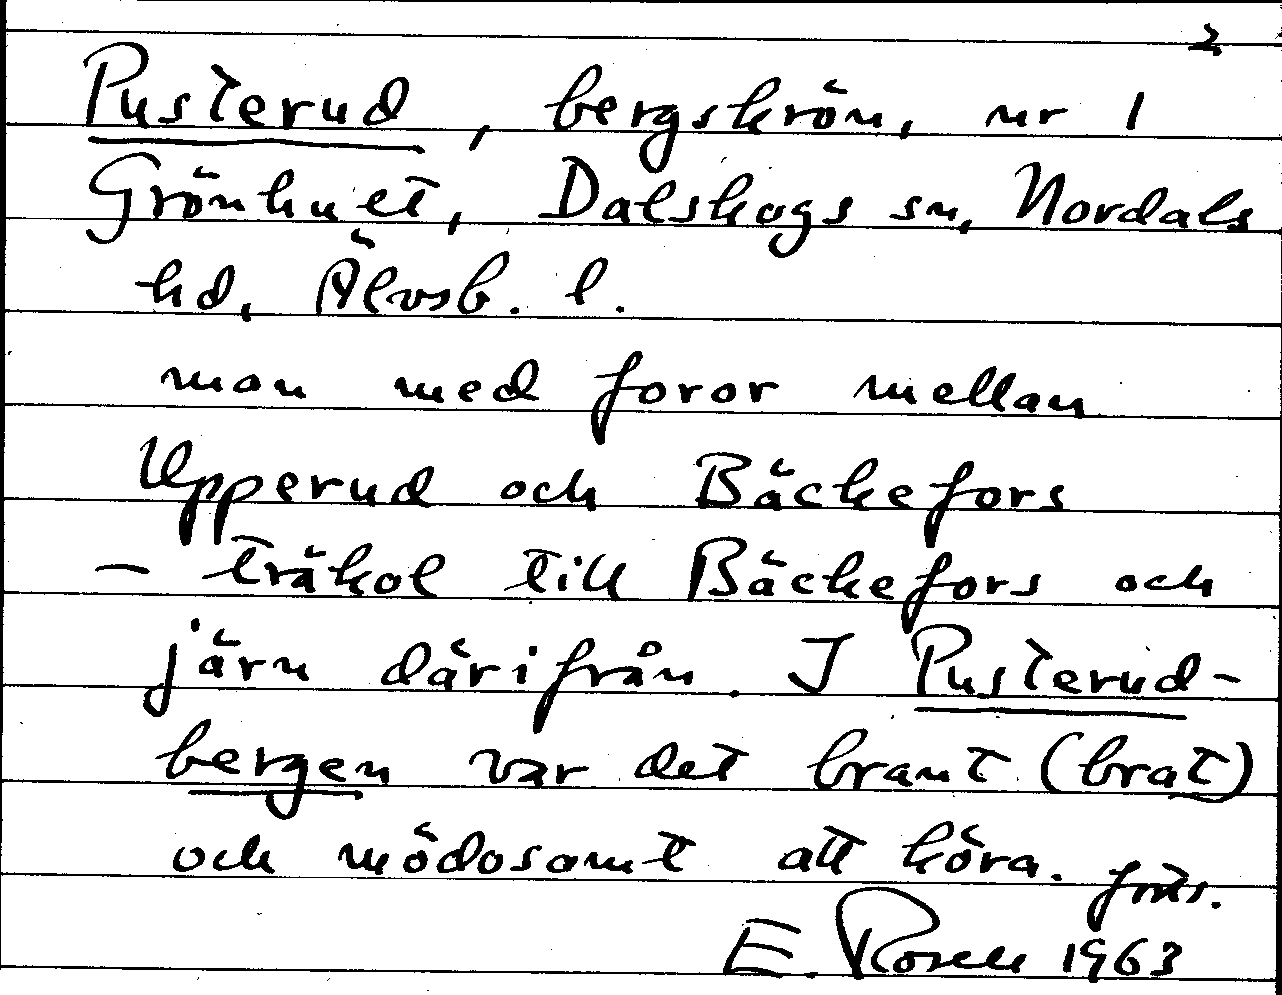 2
Pusterud, bergskrön, nr 1
Grönhult, Dalskogs sn, Nordals
hd, Älvsb. l.
man med foror mellan
Upperud och Bäckefors
— träkol till Bäckefors och
järn därifrån. I Pusterud-
bergen var det brant (brat)
och mödosamt att köra. forts.
E. Rosell 1963